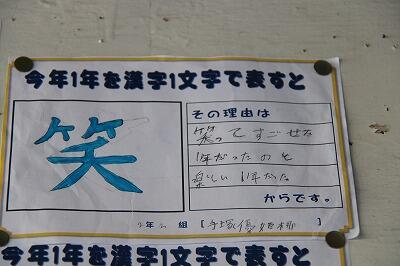 今年1年を漢字1文字で表すと
笑
その理由は
笑ってすごせた
1年だったのと
楽しい1年だった
からです。
2年2組【手塚優姫
】
今年1年を漢字1文字で表すと